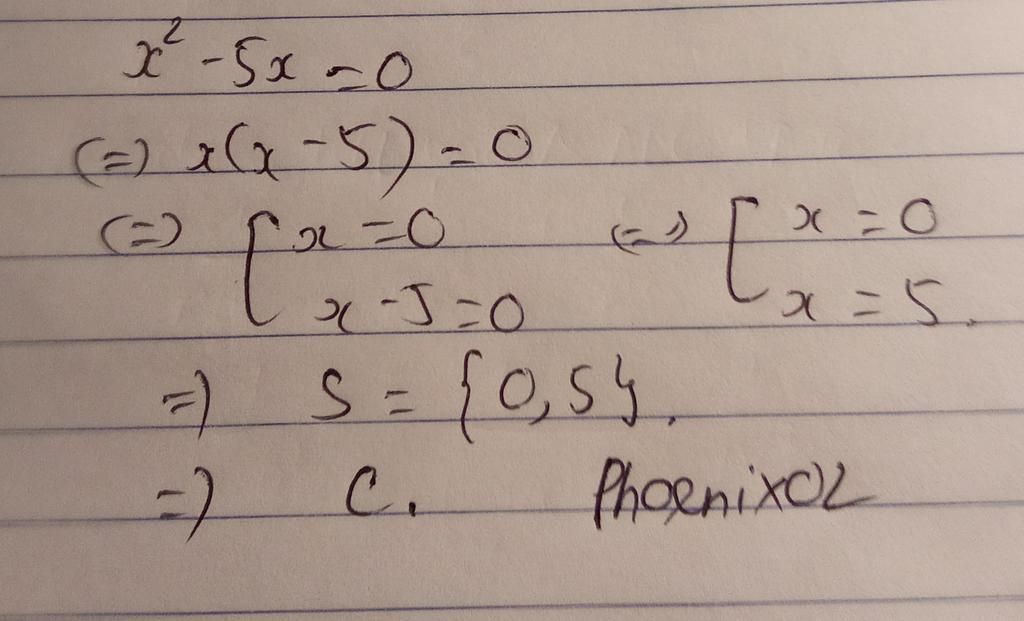 x² - 5x = 0
(=) x(x - 5) = 0
(=) [ x = 0 (=) [ x = 0
x - 5 = 0 x = 5.
=) S = {0, 5}.
=) C. Phoenix02